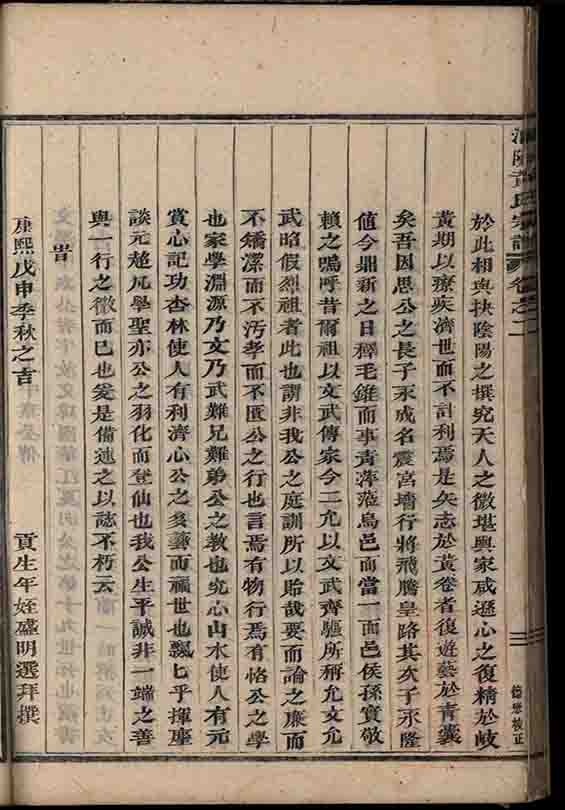 黃氏宗譜 卷之二
於此相與抉陰陽之撰究天人之微堪輿家咸遜心之復精於岐
黃期以療疾濟世而不計利焉是矢志於黃卷者復遊藝於青囊
矣吾因思公之長子永成名震宮墻行將飛騰皇路其次子永隆
值今鼎新之日釋毛錐而事青萍蒞烏邑而當一面邑侯孫實敬
賴之嗚呼昔爾祖以文武傳家今二允以文武齊驅所稱允文允
武昭假烈祖者此也謂非我公之庭訓所以貽哉要而論之廉而
不矯潔而不汚孝而不匱公之行也言焉有物行焉有恪公之學
也家學淵源乃文乃武難兄難弟公之教也究心山水使人有元
賞心記功杏林使人有利濟心公之多藝而福世也飄七乎揮麈
談元超凡學聖亦公之羽化而登仙也我公生平誠非一端之善
與一行之微而已也爰是備述之以誌不朽云
旹
康熙戊申季秋之吉
貢生年姪盛明選拜撰
校正